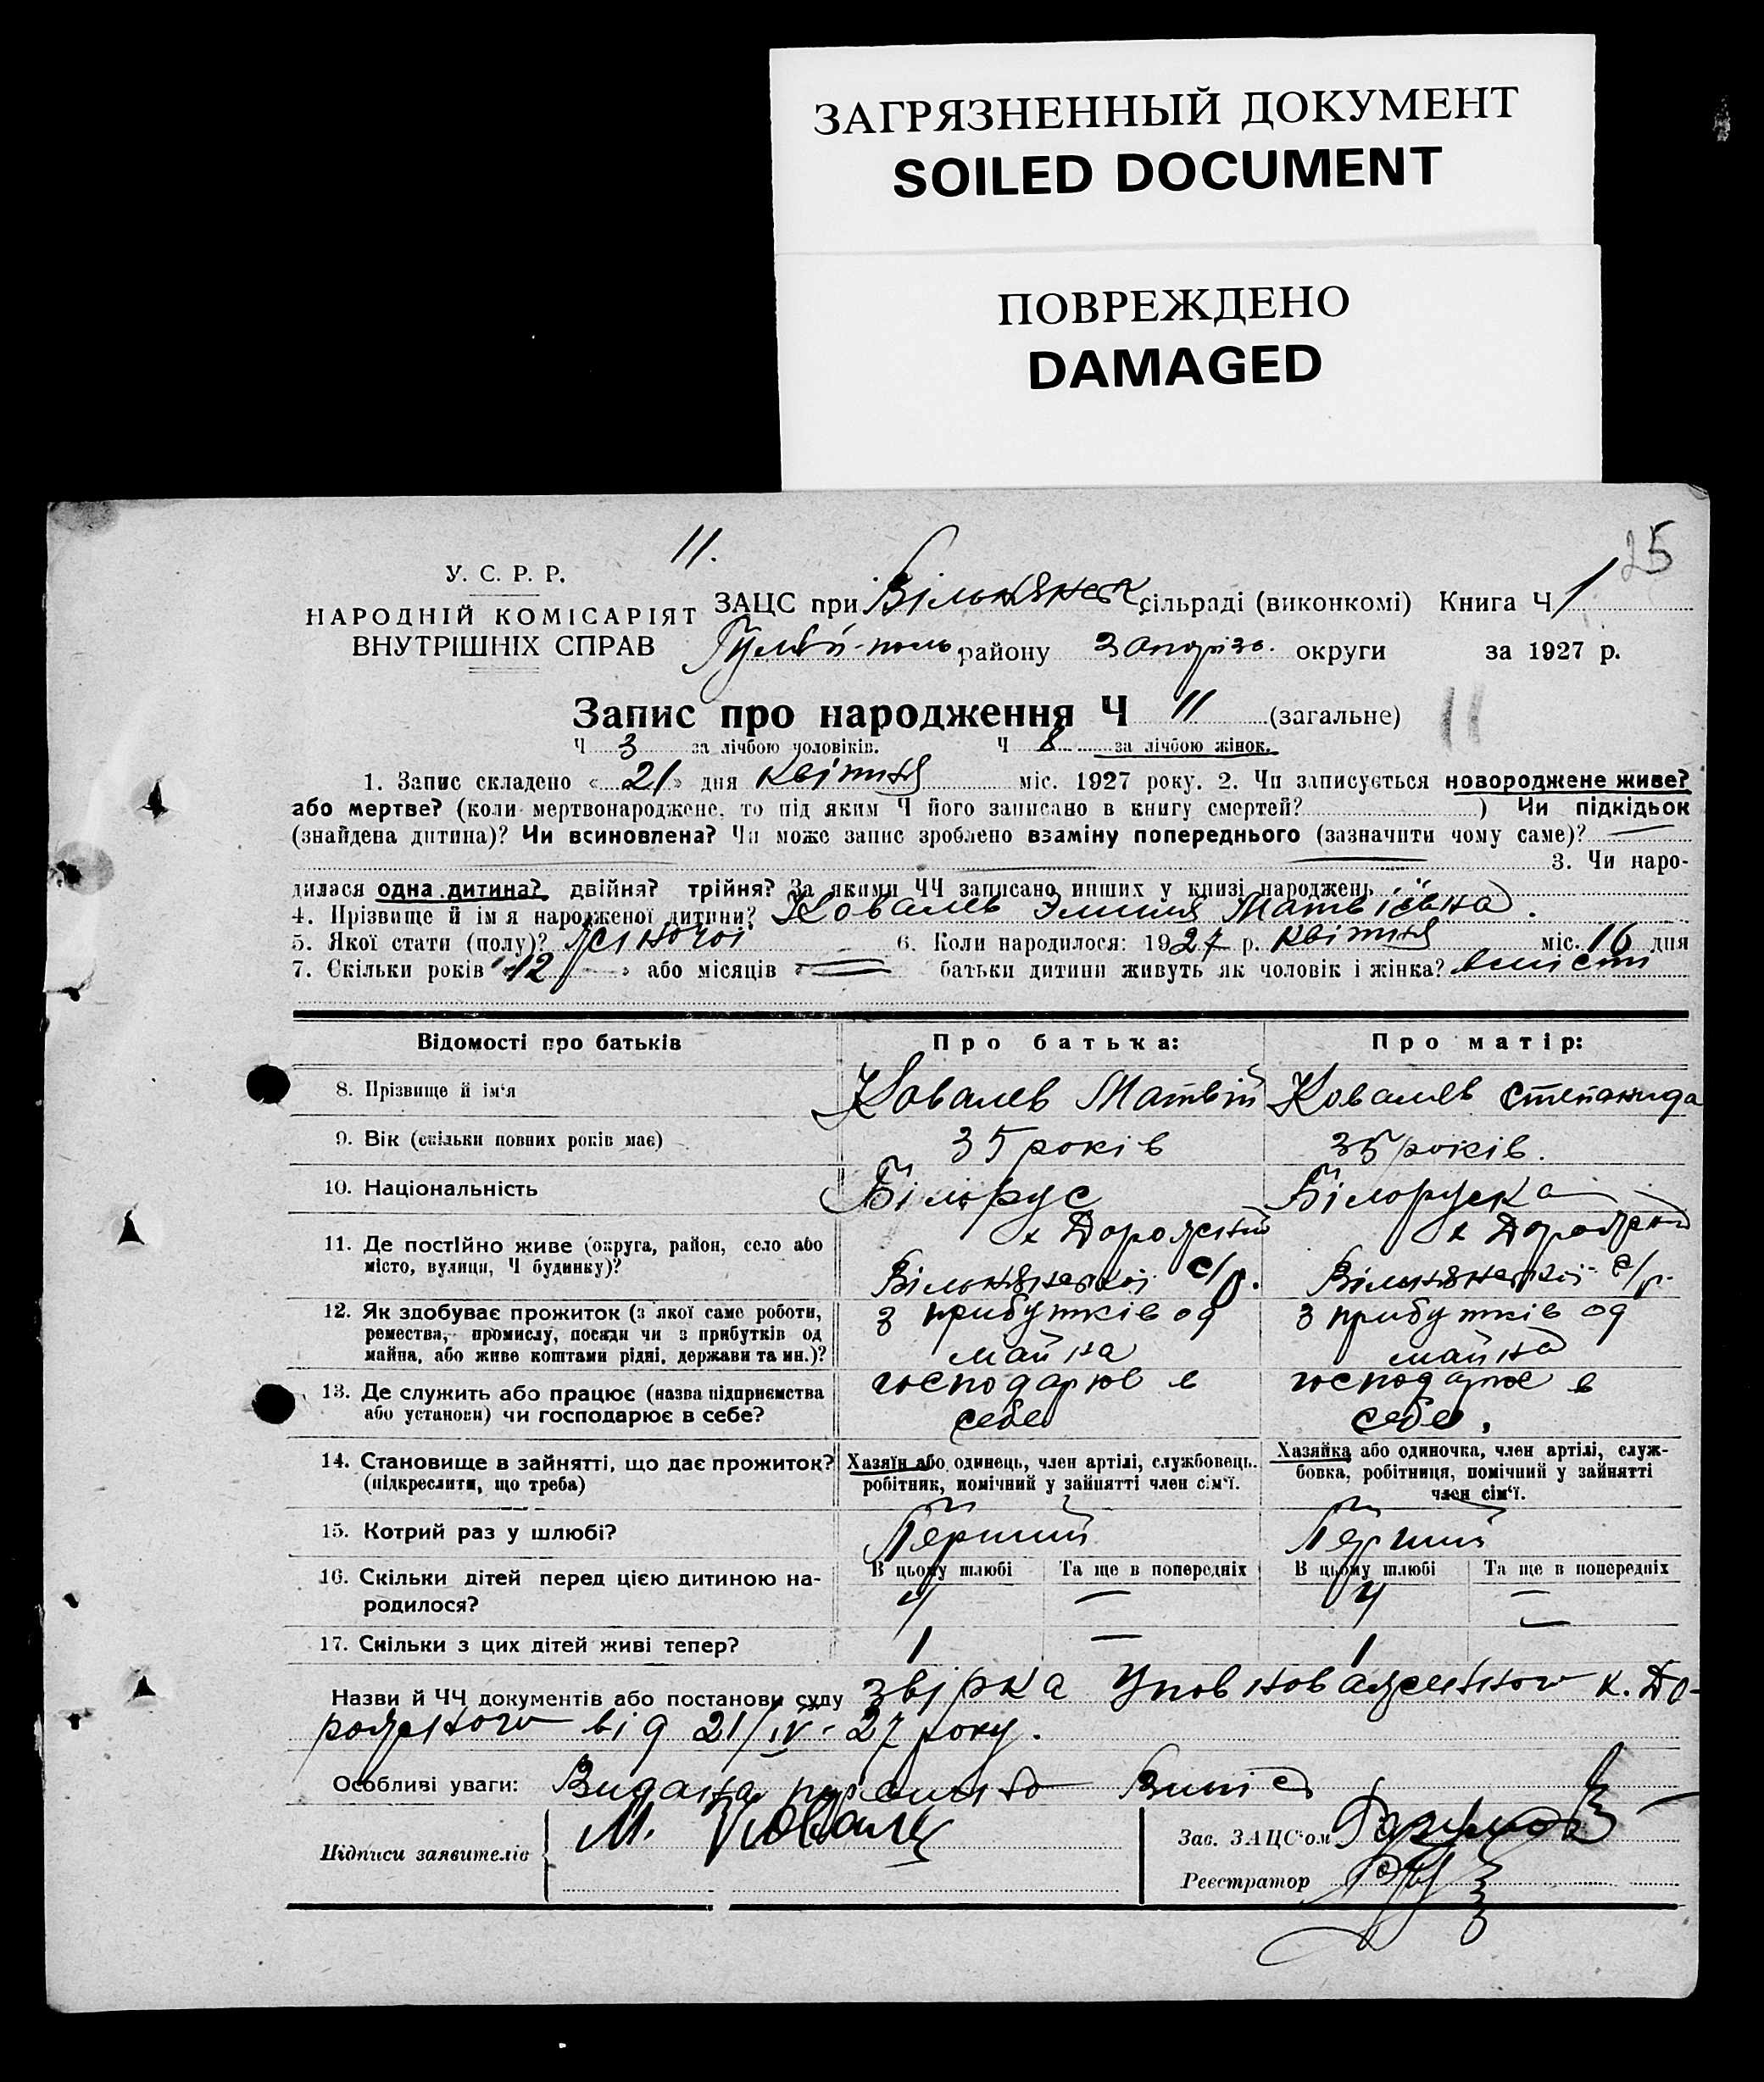 ЗАГРЯЗНЕННЫЙ ДОКУМЕНТ
SOILED DOCUMENT
ПОВРЕЖДЕНО
DAMAGED
11.
25
У. С. Р. Р.
НАРОДНІЙ КОМІСАРІЯТ
ВНУТРІШНІХ СПРАВ
ЗАЦС при Вільнянськ сільраді (виконкомі) Книга Ч 1
Гуляй-поль району Запоріз. округи за 1927 р.
Запис про народження Ч 11 (загальне) 11
Ч 3 за лічбою чоловіків. Ч 8 за лічбою жінок.
1. Запис складено « 21 » дня квітня міс. 1927 року. 2. Чи записується новороджене живе?
або мертве? (коли мертвонароджене, то під яким Ч його записано в книгу смертей? ) Чи підкідьок
(знайдена дитина)? Чи всиновлена? Чи може запис зроблено взаміну попереднього (зазначити чому саме)? —
3. Чи наро-
дилася одна дитина? двійня? трійня? За якими ЧЧ записано инших у книзі народжень
4. Прізвище й ім'я народженої дитини? Ковалев Эмилия Матвіївна.
5. Якої стати (полу)? жіночої 6. Коли народилося: 1927 р. квітня міс. 16 дня
7. Скільки років « 12 » або місяців « — батьки дитини живуть як чоловік і жінка? вмісті
Відомості про батьків Про батька: Про матір:
8. Прізвище й ім'я Ковалев Матвій Ковалев Степанида
9. Вік (скільки повних років має) 35 років 35 років.
10. Національність Білорус Білоруска
х Дорожний х Дорожний
11. Де постійно живе (округа, район, село або
місто, вулиця, Ч будинку)? Вільнянської с/р. Вільнянської с/р.
12. Як здобуває прожиток (з якої саме роботи, з прибутків од з прибутків од
ремества, промислу, посади чи з прибутків од
майна, або живе коштами рідні, держави та ин.)? майна майна
13. Де служить або працює (назва підприємства господарює в господарює в
або установи) чи господарює в себе? себе себе,
14. Становище в зайнятті, що дає прожиток? Хазяїн або одинець, член артілі, службовець. Хазяйка або одиночка, член артілі, служ-
(підкреслити, що треба) робітник, помічний у зайнятті член сім'ї. бовка, робітниця, помічний у зайнятті
член сім'ї.
15. Котрий раз у шлюбі? Перший Перший
16. Скільки дітей перед цією дитиною на- В цьому шлюбі Та ще в попередніх В цьому шлюбі Та ще в попередніх
родилося? 4 — 4 —
17. Скільки з цих дітей живі тепер? 1 — 1 —
Назви й ЧЧ документів або постанови суду звірка Уповноваженого х. До-
рожного від 21/IV-27 року.
Особливі уваги: Видана первістна Випис
Підписи заявителів М. Ковалев Зав. ЗАЦС'ом
Реєстратор